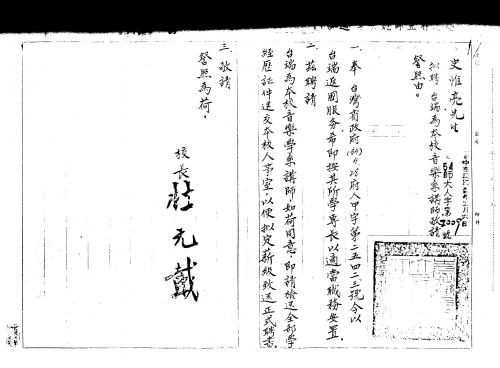 史惟亮先生
擬聘 台端為本校音樂系講師敬請
詧照由。
師大人字第2009號
一、奉 台灣省政府(54)4.28府人甲字第二五四二三號令以
台端返國服务希即按其所學專長以適當職務安置。
二、茲聘請
台端為本校音樂學系講師，如荷同意，即請檢送全部學
經歷証件送交本校人事室，以便擬定薪級致送正式聘書。
三、敬請
詧照為荷。
校長 杜元載